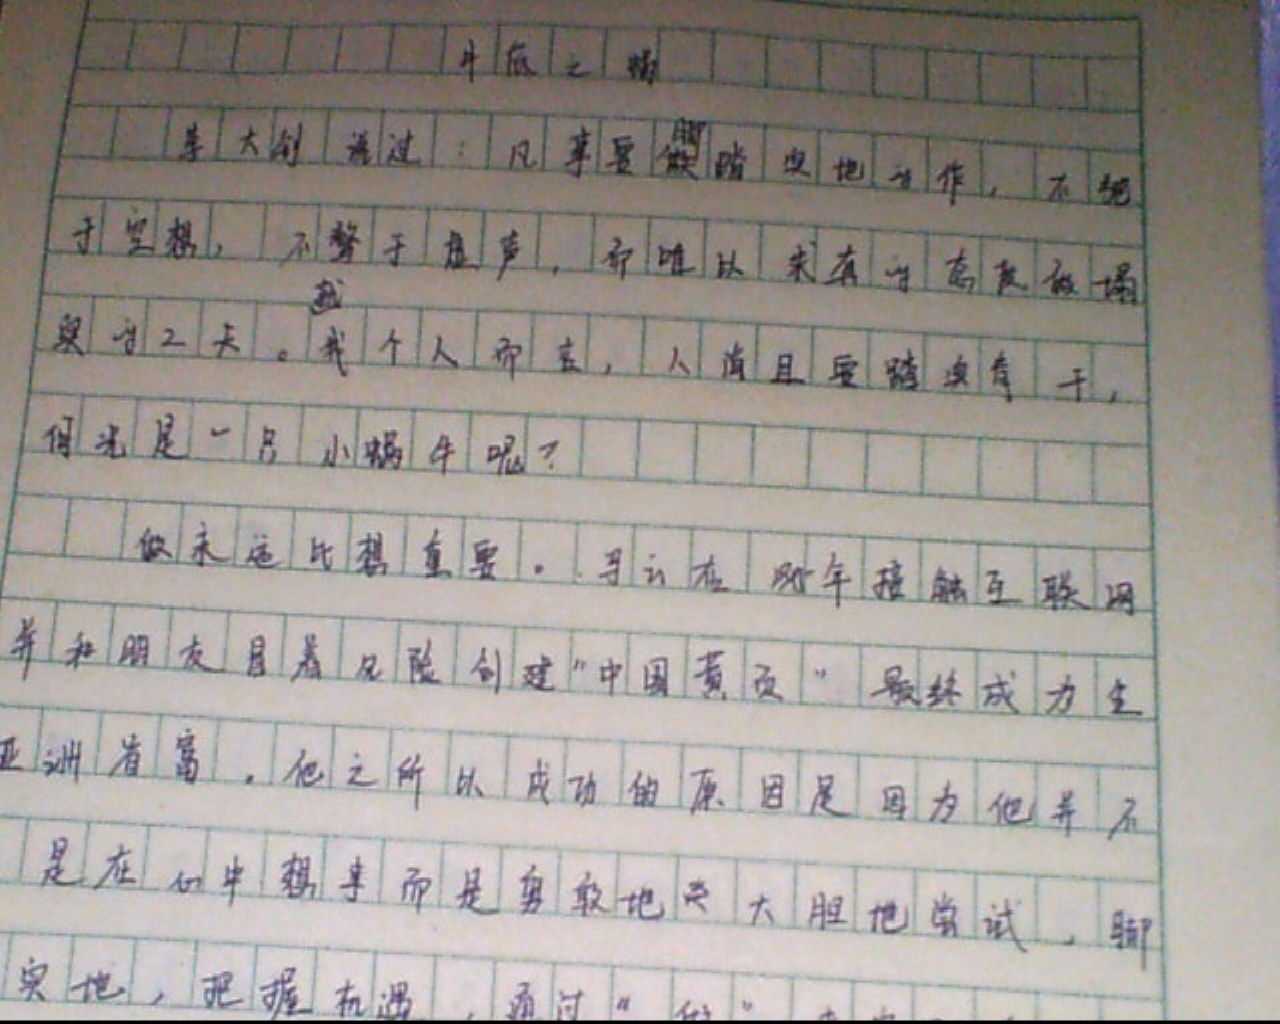 井底之蜗
李大钊说过：凡事要脚踏实地的作，不驰
于空想，不骛于虚声，而唯以求真的态度做踏
实的工夫。就个人而言，人尚且要踏实肯干，
何况是一只小蜗牛呢？
做永远比想重要。马云在85年接触互联网
并和朋友冒着风险创建“中国黄页”最终成为全
亚洲首富。他之所以成功的原因是因为他并不
是在心中想事而是勇敢地大胆地尝试，脚
实地，把握机遇，通过“做”